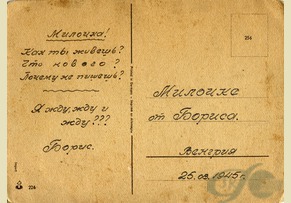 Милочка!
Как ты живешь?
Что нового?
Почему не пишешь?
Я жду, жду и
жду???
Борис.
22А
256
Милочке
от Бориса.
Венгрия
25.03.1945г.